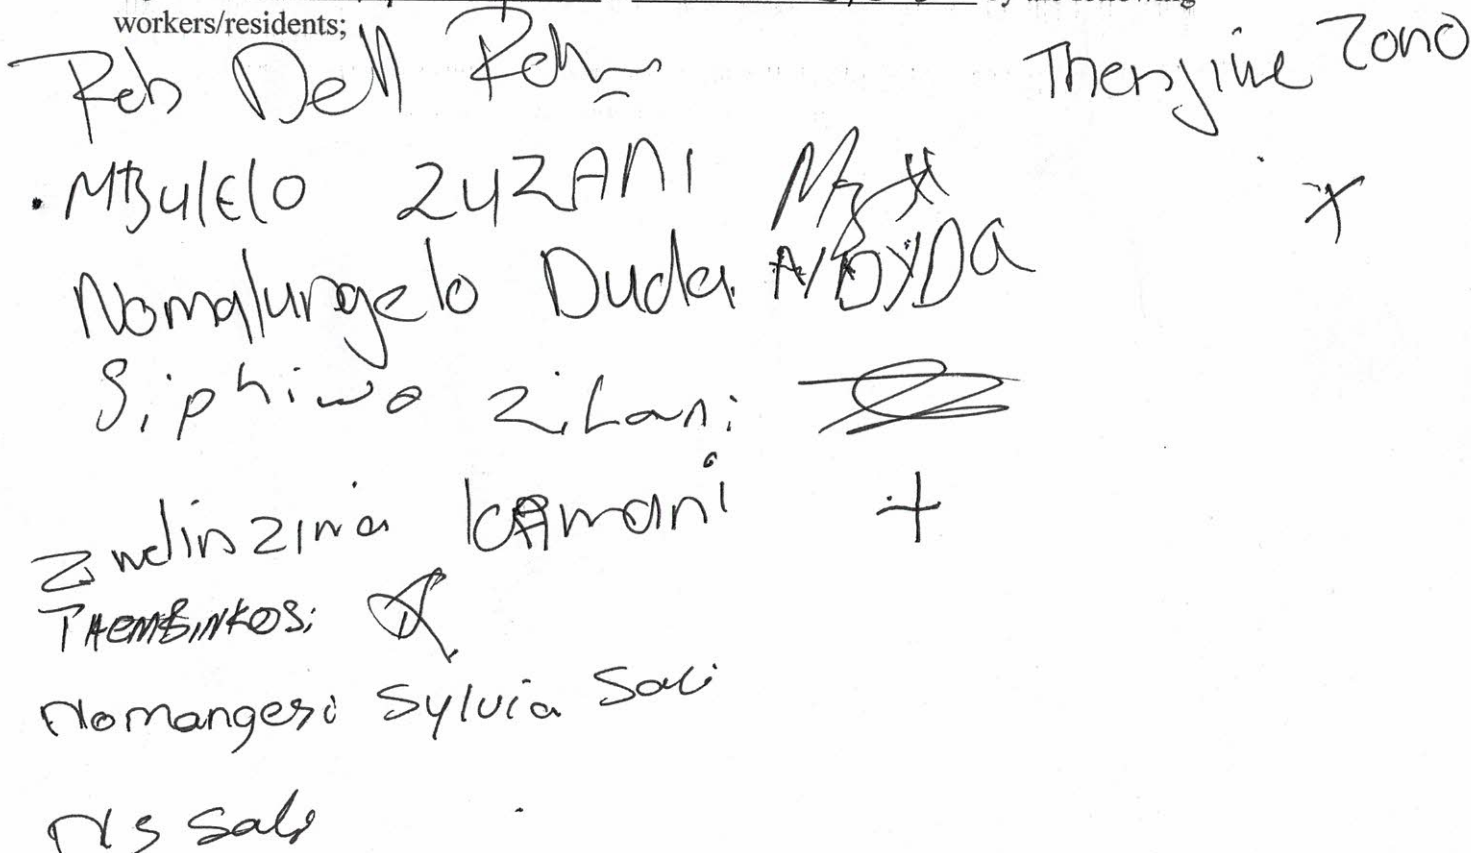 by the following
workers/residents;
Rob Dell
Thenjiwe Zono
MBulElo ZUZANI
X
Nomalungelo Duda N DUDA
Siphiwo Zilani
Zwelinzima KAmani +
THEMBINKOSi
Nomangesi Sylvia Sali
NS Sali